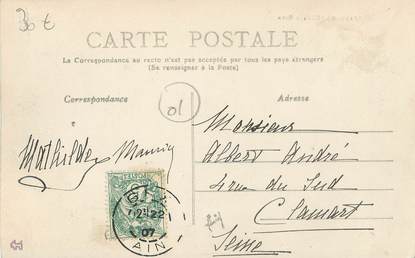 30 €
CARTE POSTALE
La Correspondance au recto n'est pas acceptée par tous les pays étrangers
(Se renseigner à la Poste)
Correspondance
Adresse
01
Monsieur
Albert André
4 rue du Sud
Clamart
Seine
Mathilde Mauris
22
07
AIN